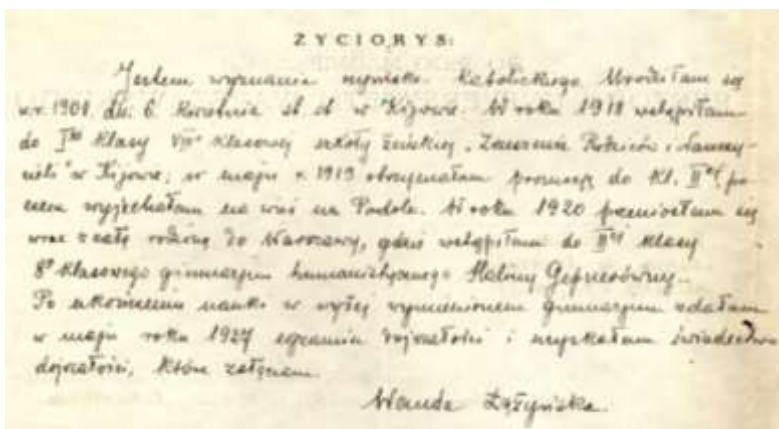 ŻYCIORYS:
Jestem wyznania rzymsko-katolickiego. Urodziłam się
w r. 1908 dn. 6. kwietnia st. st. w Kijowie. W roku 1918 wstąpiłam
do I klasy VII klasowej szkoły żeńskiej „Zrzeszenia Rodziców i Nauczy-
cieli" w Kijowie; w maju r. 1919 otrzymałam promocję do kl. II ej po-
czem wyjechałam na wieś na Podole. W roku 1920 przeniosłam się
wraz z całą rodziną do Warszawy, gdzie wstąpiłam do II ej klasy
8° klasowego gimnazjum humanistycznego Haliny Gepnerówny.
Po ukończeniu nauki w wyżej wymienionem gimnazjum zdałam
w maju roku 1927 egzamin dojrzałości i uzyskałam świadectwo
dojrzałości, które załączam.
Wanda